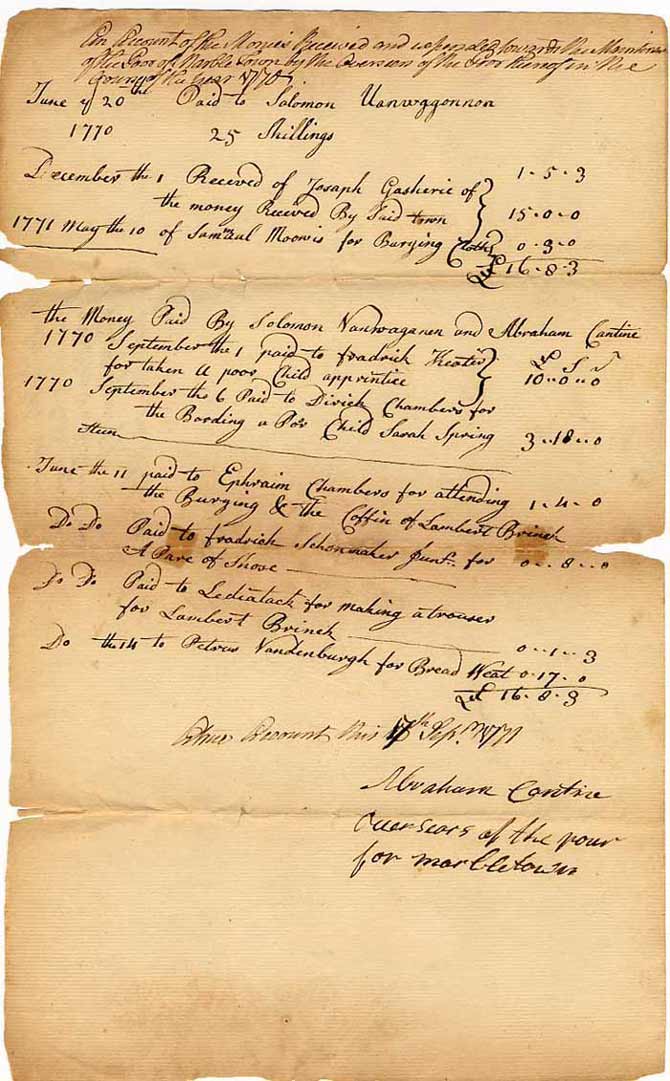 An Account of the Monies Received and expended towards the Maintaince
of the Poor of Marble Town by the Overseers of the Poor thereof in the
County of the Year 1770
June ye 20th Paid to Solomon Vanwaggonnon
1770 25 Shillings 1-5-3
December the 1 Receved of Josaph Gasherie of
the money Receved By Said town 15-0-0
1771 May the 10 of Samuel Moowis for Burying Cloths 0-3-0
£ 16-8-3
the Money Paid By Solomon Vanwaganen and Abraham Cantine
1770 September the 1 paid to fradrick Keater £ S D
for taken a poor Child apprintice 10-0-0
1770 September the 6 Paid to Dirick Chambers for
the Bording a Por Child Sarah Spring 3-18-0
June the 11 paid to Ephraim Chambers for attending
the Burying & the Coffin of Lambert Brinck 1-4-0
Do Do Paid to fradrick Schonmaker Junr. for
A Pare of Shoose 0-8-0
Do Do Paid to Lediatack for making a trouser
for Lambert Brinck 0-1-3
Do the 14 to Petrus Vandenburgh for Bread Weat 0-17-0
£ 16-8-3
a true Account this 17th Sepr. 1771
Abraham Cantine
Overseors of the pour
for marbletown